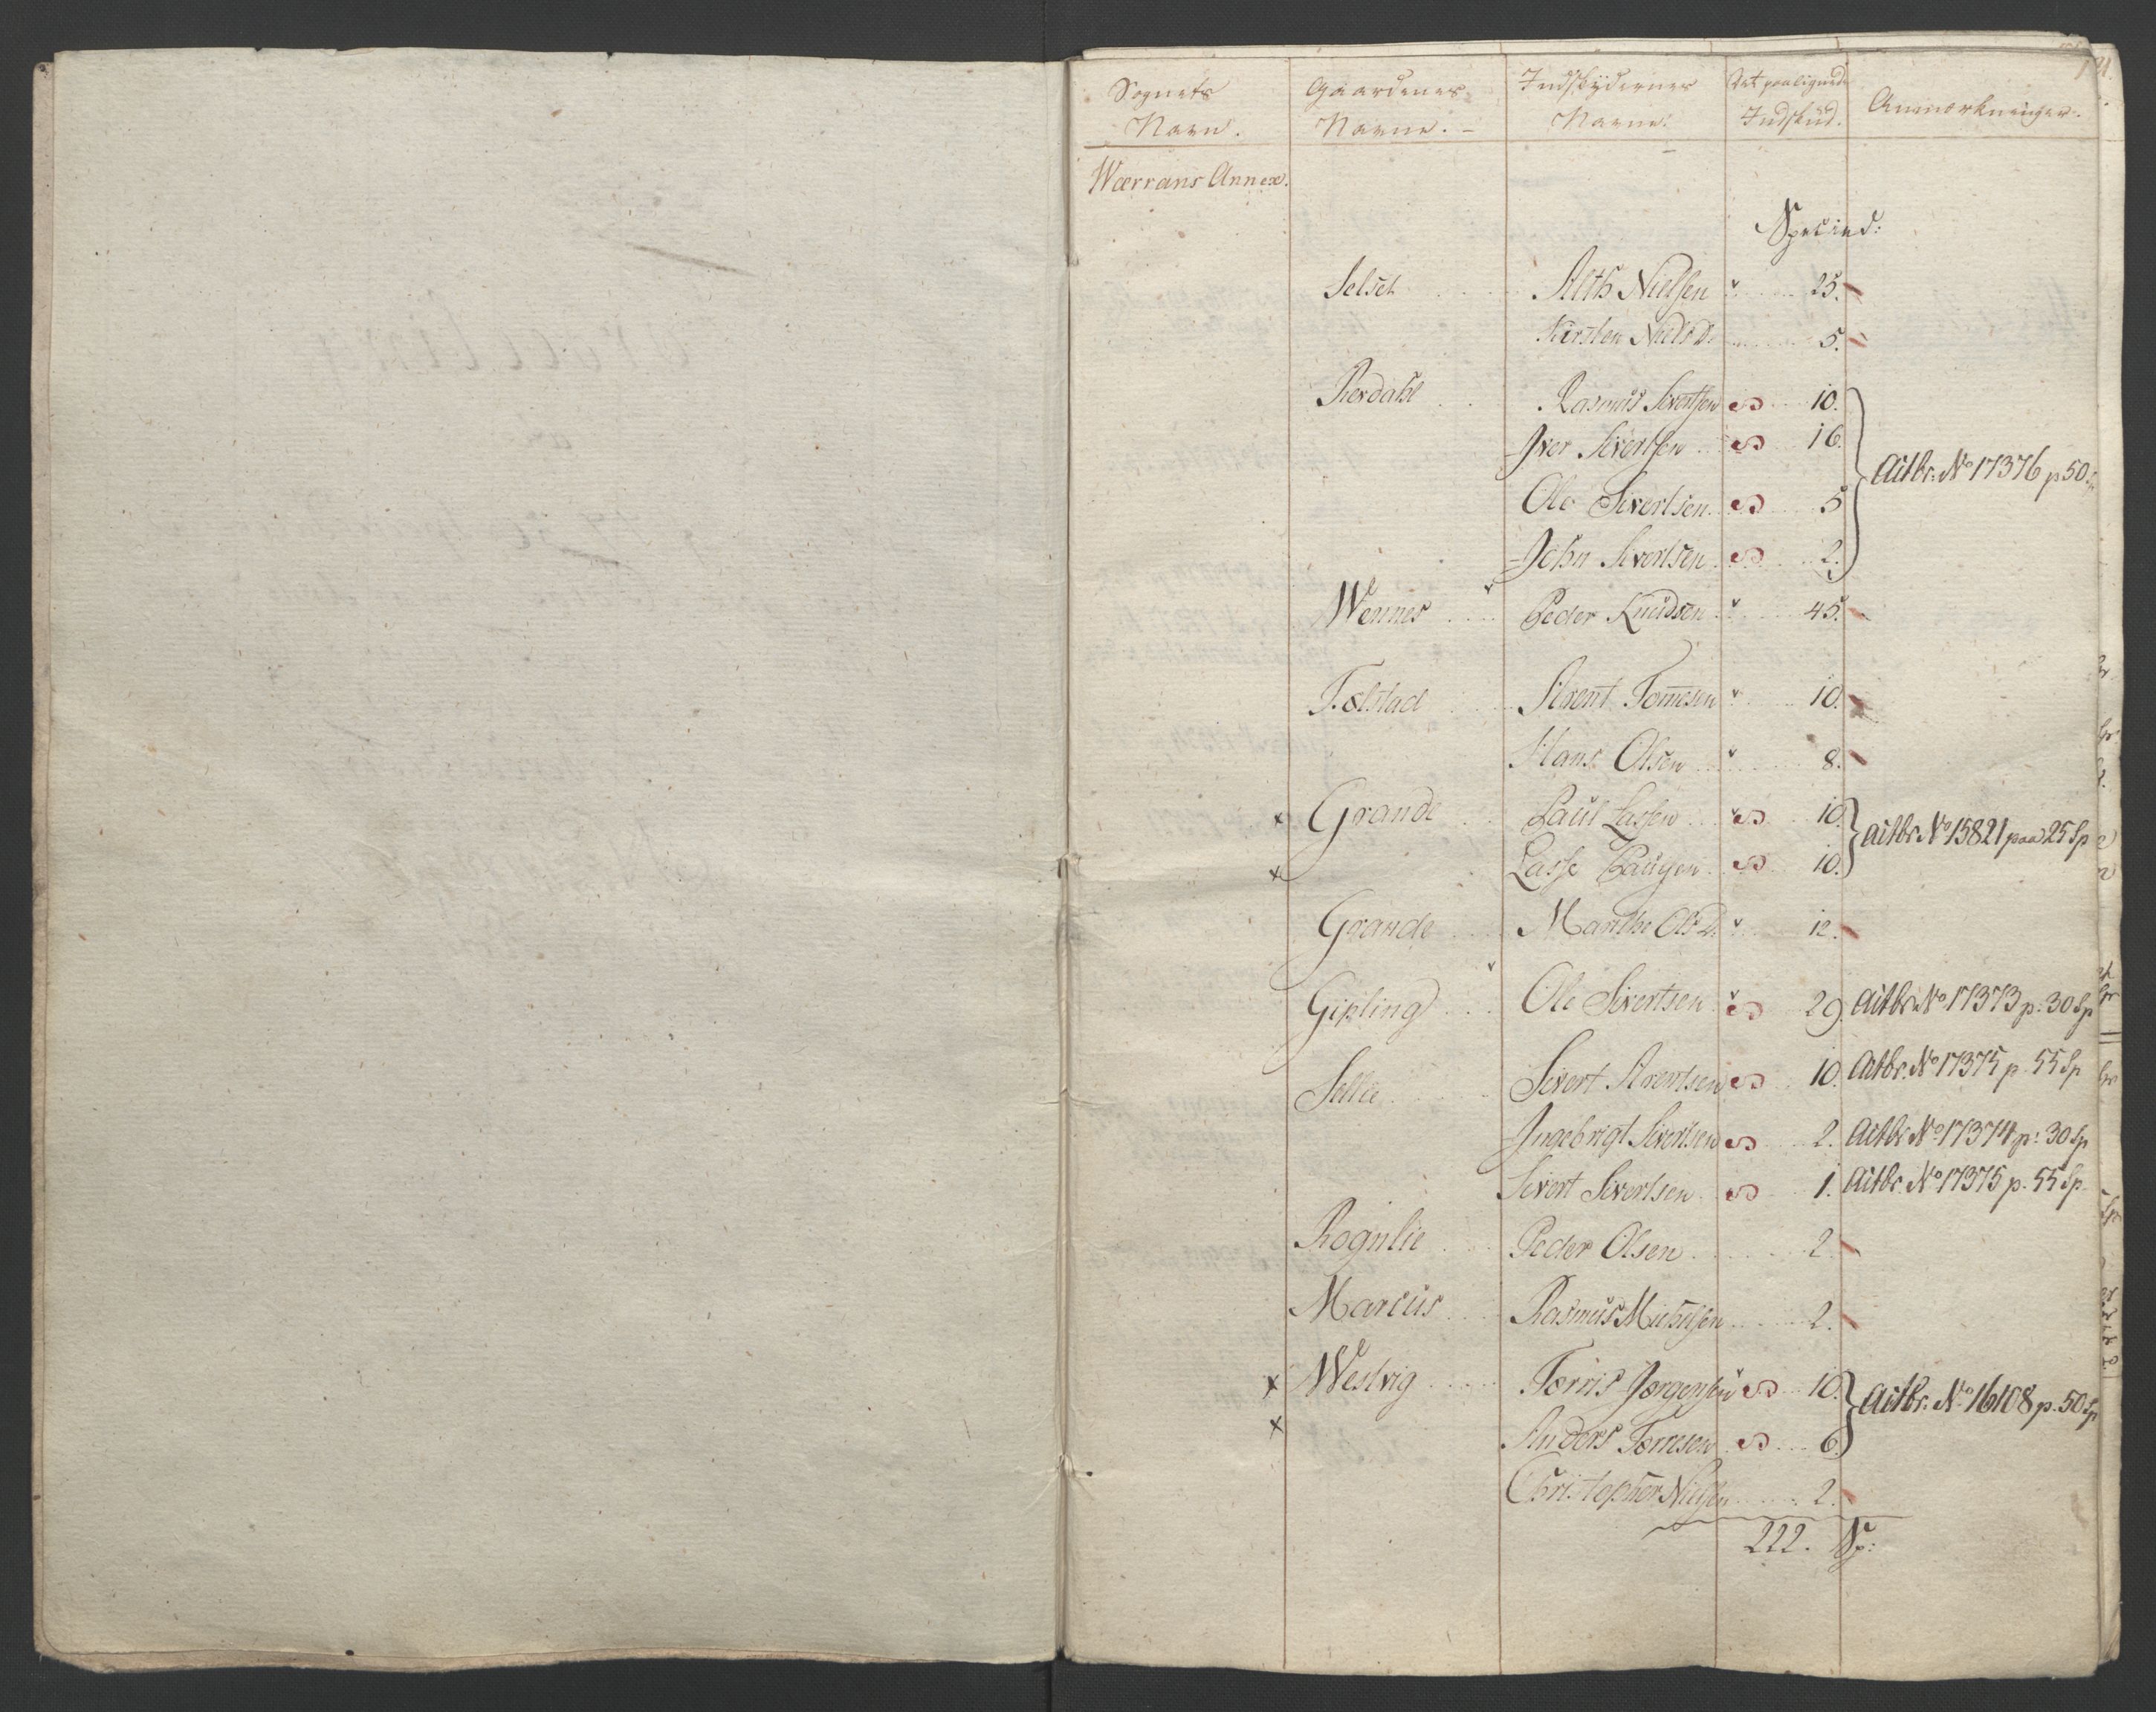 Sognets Navn. Gaardenes Navne. Indskydernes Navne. Det paalignede Indskud. Anmærkninger.
Wærrans Annex.
Specied:
Selset Alth Nielsen 25.
Kirsten Niels D. 5.
Rerdahl Rasmus Sivertsen 10.
Iver Sivertsen 16. Actbr. No 17376 p 50 Sp
Ole Sivertsen 5
John Sivertsen 2.
Wennes Peder Knudsen 45.
Folstad Arent Tomesen 10.
Hans Olsen 8.
x Grande Paul Lassen 10. Actbr No 15821 paa 25 Sp
x Lasse Haugen 10.
Grande Marithe Ols D. 12.
Gipling Ole Sivertsen 29. Actbr No 17373 p. 30 Sp
Sellie Sivert Arentsen 10. Actbr. No 17375 p. 55 Sp
Ingebrigt Sivertsen 2. Actbr No 17374 p: 30 Sp
Sivert Sivertsen 1. Actbr. No 17375 p. 55 Sp.
Rognlie Peder Olsen 2.
Marcus Rasmus Michelsen 2.
x Westvig Torris Jørgensen 10. Actbr. No 16108 p. 50 Sp
x Anders Torresen 6.
Christopher Nielsen 2.
222. Sp: